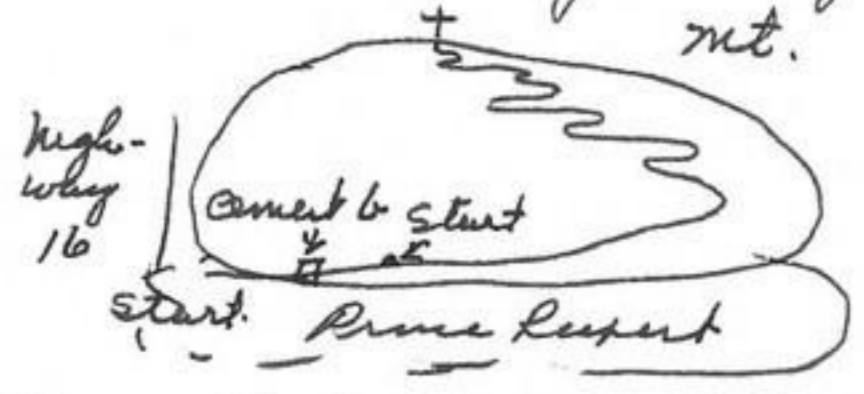 mt.
High-
way
16
Cement b Start
Start.
Prince Rupert